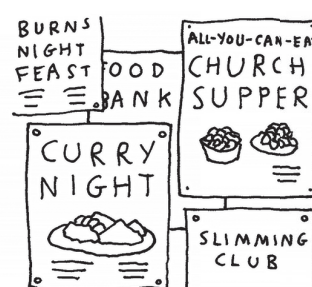 BURNS
NIGHT
FEAST
OOD
BANK
ALL-YOU-CAN-EA
CHURCH
SUPPER
CURRY
NIGHT
SLIMMING
CLUB